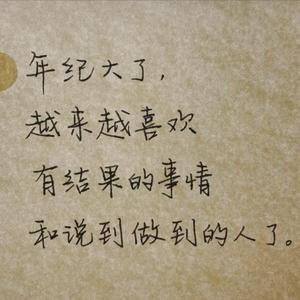 年纪大了，
越来越喜欢
有结果的事情
和说到做到的人了。